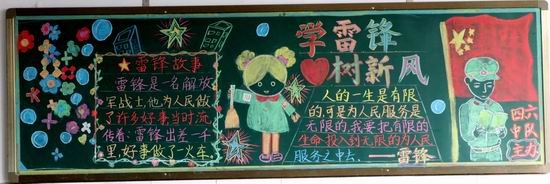 雷锋故事
雷锋是一名解放
军战士,他为人民做
了许多好事当时流
传着:雷锋出差一千
里,好事做了一火车.
学雷锋
树新风
人的一生是有限
的,可是为人民服务是
无限的,我要把有限的
生命,投入到无限的为人民
服务之中去.——雷锋
四六
中队
主办